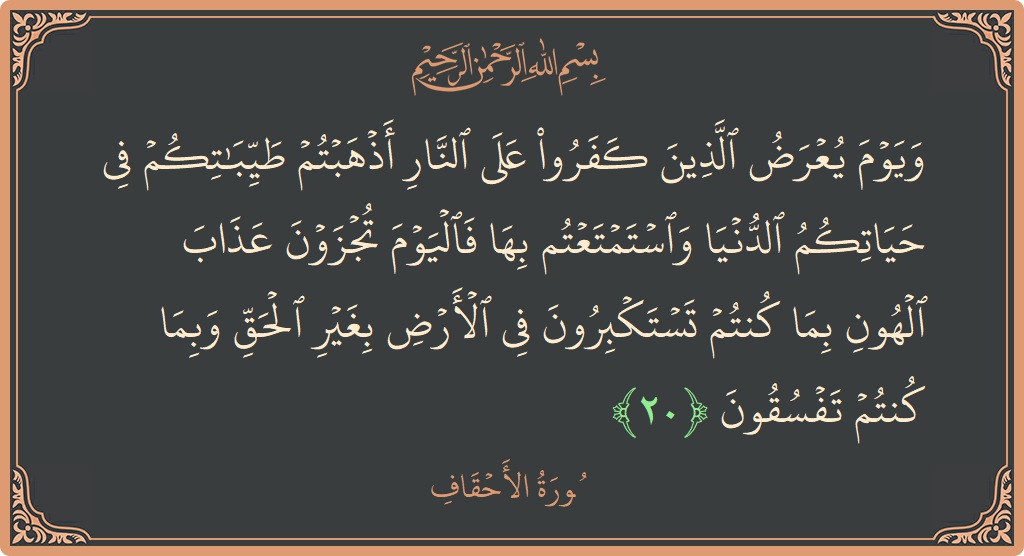 بِسْمِ اللهِ الرَّحْمٰنِ الرَّحِيْمِ
وَيَوْمَ يُعْرَضُ ٱلَّذِينَ كَفَرُوا۟ عَلَى ٱلنَّارِ أَذْهَبْتُمْ طَيِّبَـٰتِكُمْ فِى
حَيَاتِكُمُ ٱلدُّنْيَا وَٱسْتَمْتَعْتُم بِهَا فَٱلْيَوْمَ تُجْزَوْنَ عَذَابَ
ٱلْهُونِ بِمَا كُنتُمْ تَسْتَكْبِرُونَ فِى ٱلْأَرْضِ بِغَيْرِ ٱلْحَقِّ وَبِمَا
كُنتُمْ تَفْسُقُونَ ﴿٢٠﴾
سُورَةُ الأَحْقَافِ